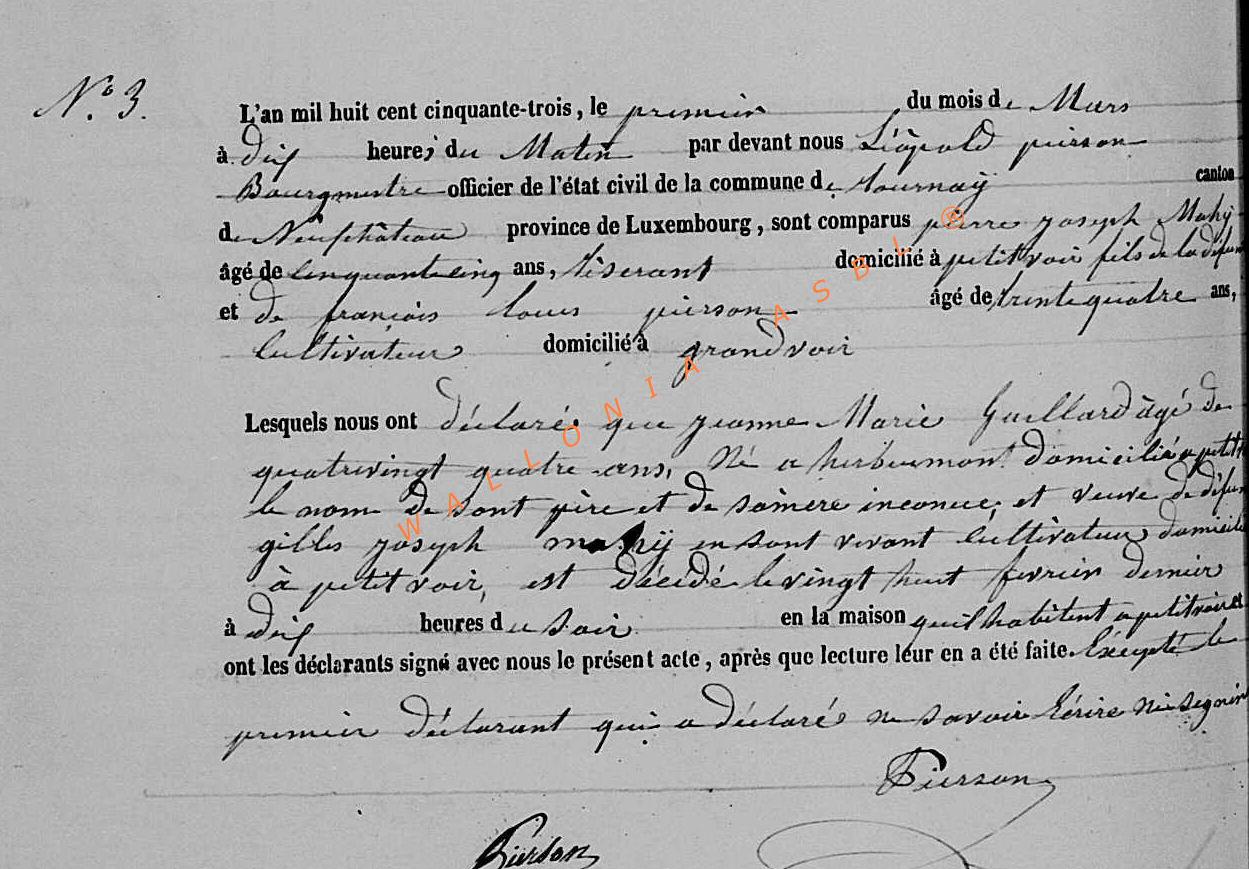 N.° 3.
L'an mil huit cent cinquante-trois, le premier du mois de Mars
à dix heures du Matin par devant nous Léopold pierson
Bourgmestre officier de l'état civil de la commune de tournaÿ canton
de Neufchâteau province de Luxembourg, sont comparus pierre joseph Mahÿ
âgé de cinquante cinq ans, tiserant domicilié à petitvoir fils de la défun
et de françois louis pierson âgé de trente quatre ans,
Cultivateur domicilié à grandvoir
Lesquels nous ont déclaré que jeanne Marie Guillard âgé de
quatrevingt quatre ans, Né a herbeumont domicilié a petit
le nom de sont père et de samère inconue, et veuve de défun
gilles joseph mahÿ en sont vivant Cultivateur domicile
à petit voir, est décédé le vingt huit fevrier dernier
à dix heures du soir en la maison quil habitent a petitvoir et
ont les déclarants signé avec nous le présent acte, après que lecture leur en a été faite Excepté le
premier déclarant qui a déclaré ne savoir Écrire ni segnier
Pierson
Pierson
WALLONIA ASBL ®